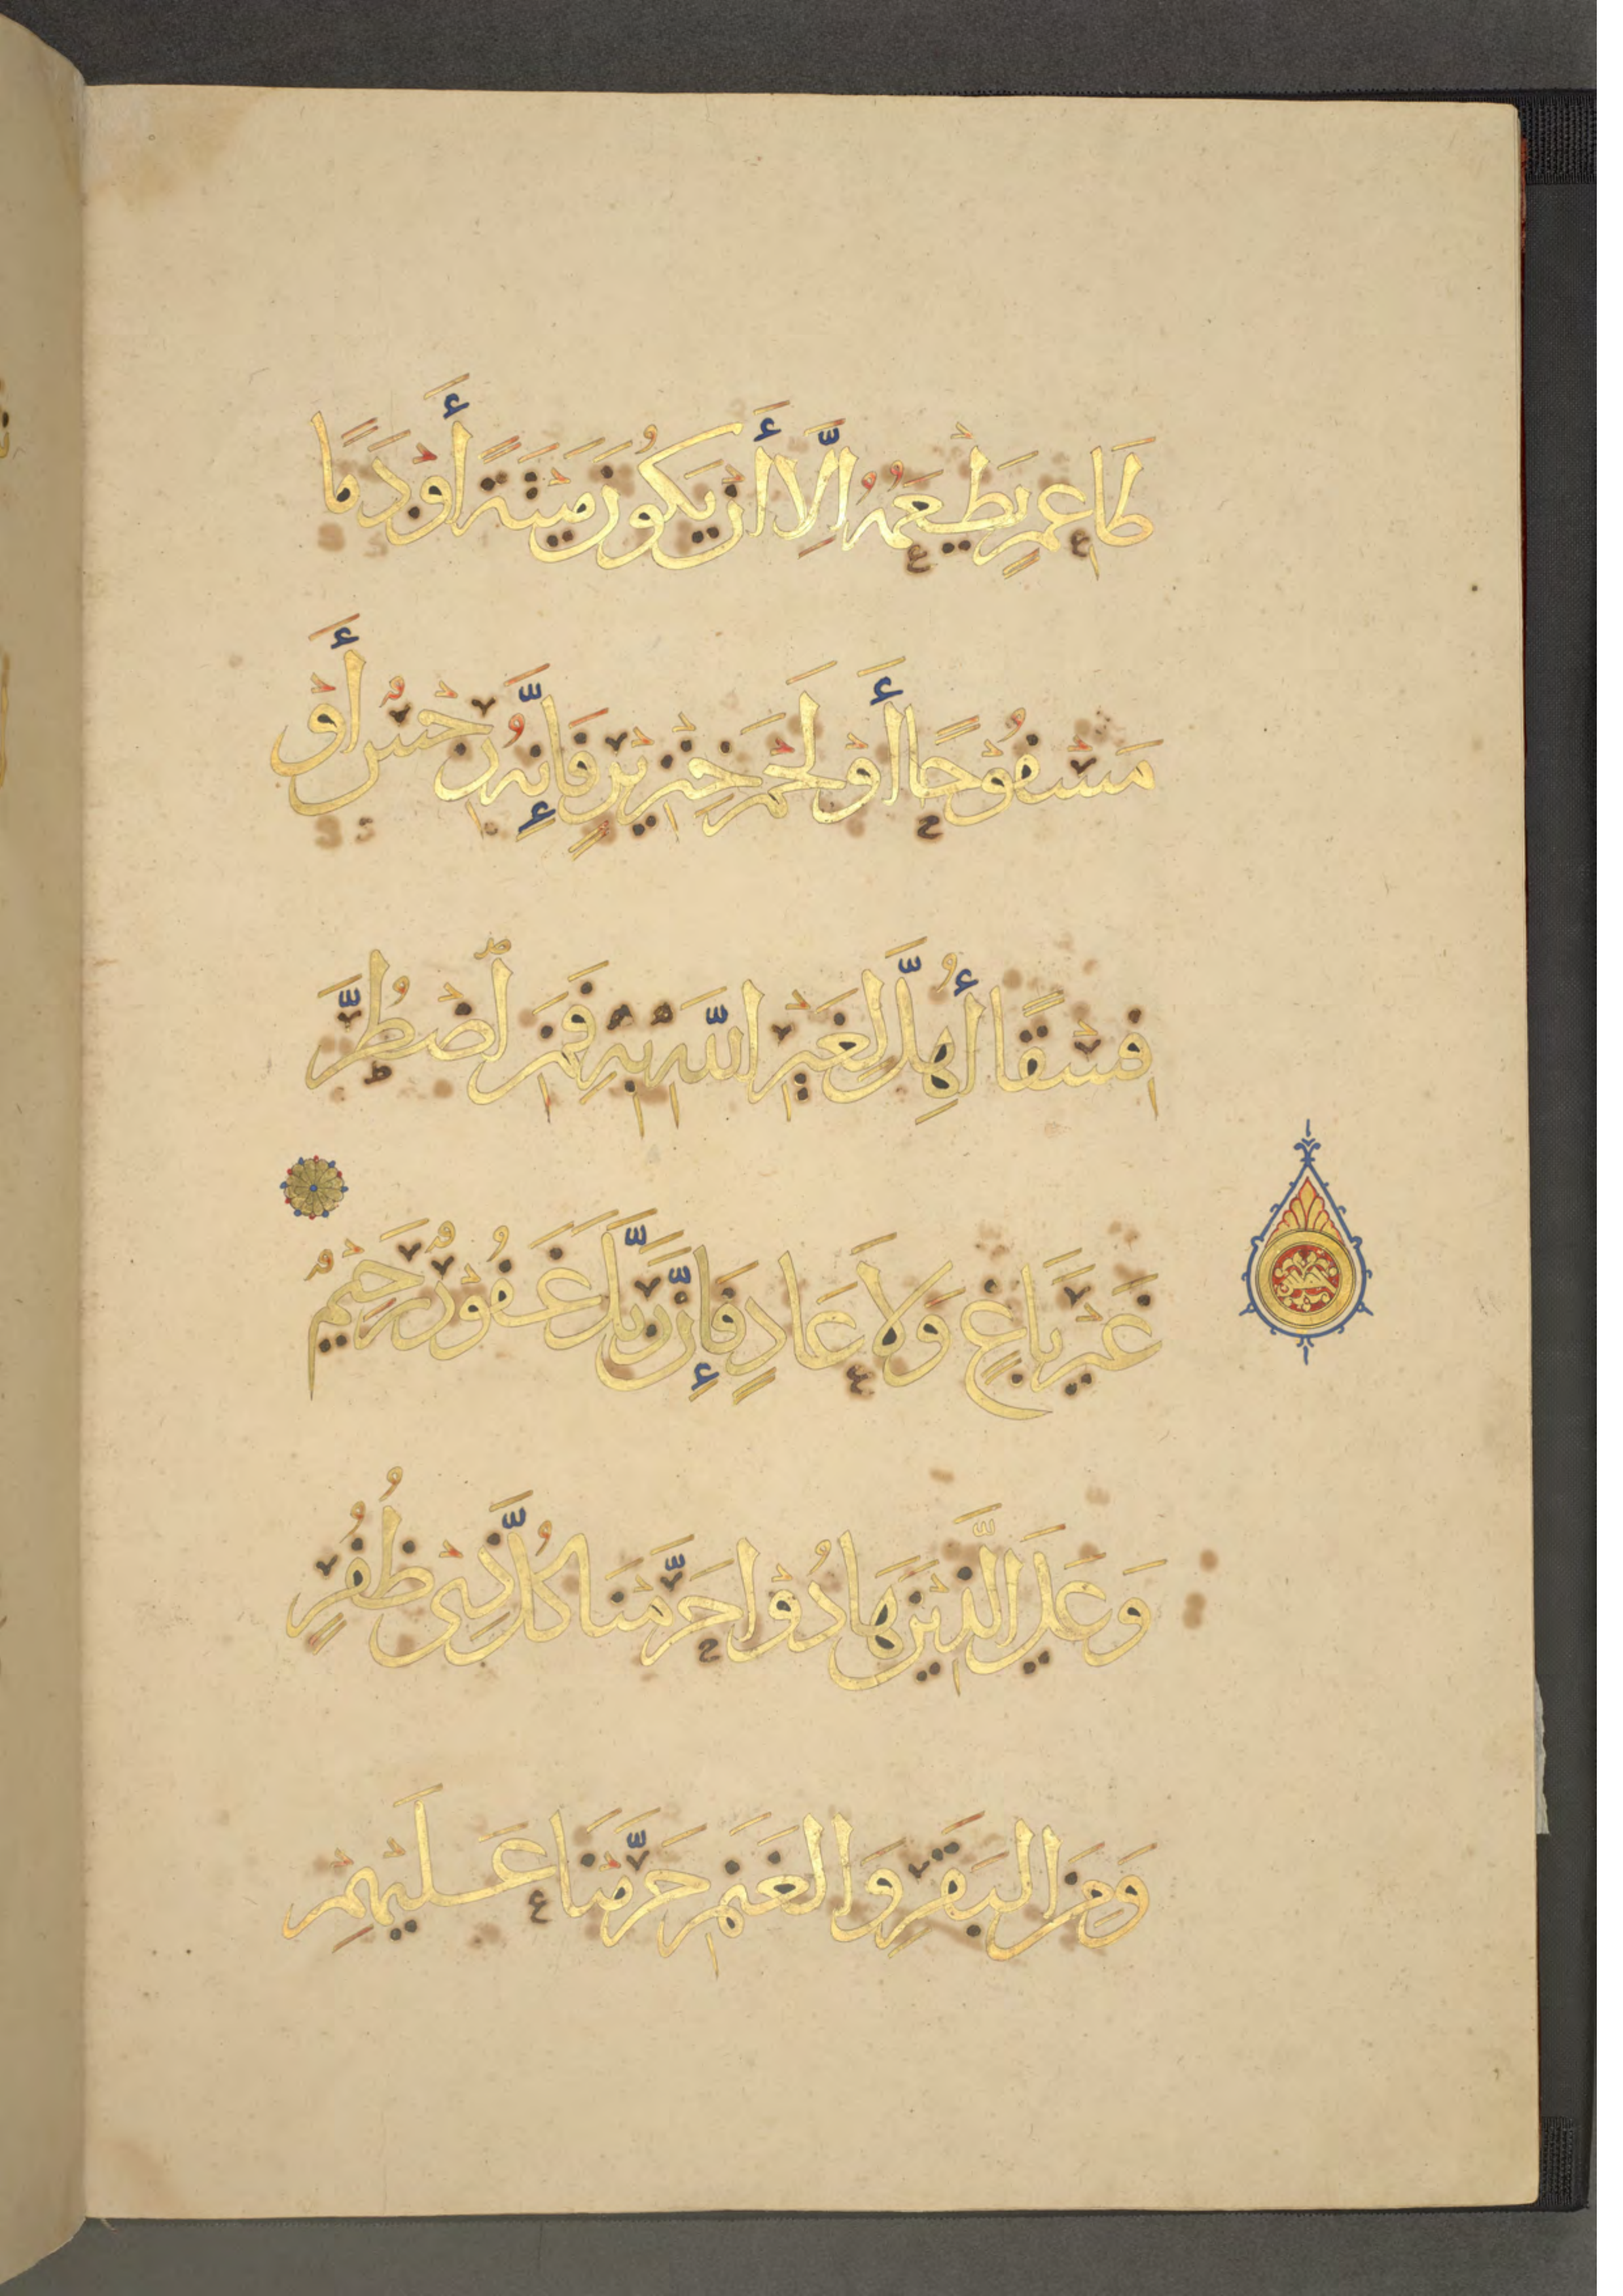 طَاعِمٍ يَطْعَمُهُ إِلَّا أَنْ يَكُونَ مَيْتَةً أَوْ دَمًا
مَسْفُوحًا أَوْ لَحْمَ خِنْزِيرٍ فَإِنَّهُ رِجْسٌ أَوْ
فِسْقًا أُهِلَّ لِغَيْرِ اللَّهِ بِهِ فَمَنِ اضْطُرَّ
غَيْرَ بَاغٍ وَلَا عَادٍ فَإِنَّ رَبَّكَ غَفُورٌ رَحِيمٌ
وَعَلَى الَّذِينَ هَادُوْا حَرَّمْنَا كُلَّ ذِي ظُفُرٍ
وَمِنَ الْبَقَرِ وَالْغَنَمِ حَرَّمْنَا عَلَيْهِمْ